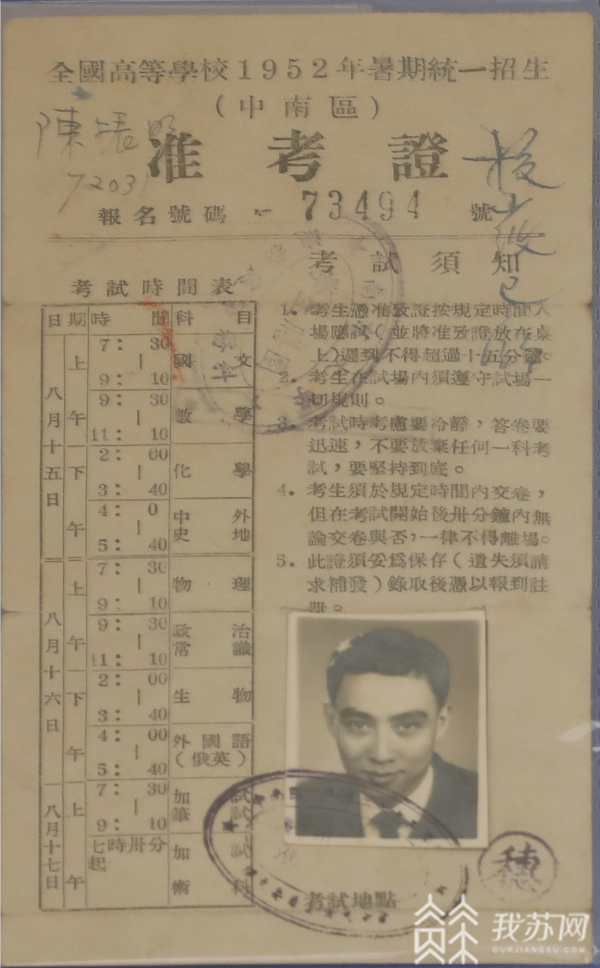 全國高等學校1952年暑期統一招生
(中南區)
陳振
7203
准考證
報名號碼 73494 號
考試時間表
日期 時間 科目
八月十五日
上午
7:30－9:10 國文
9:30－11:10 數學
下午
2:00－3:40 化學
4:0－5:40 中外史地
八月十六日
上午
7:30－9:10 物理
9:30－11:10 政治常識
下午
2:00－3:40 生物
4:00－5:40 外國語(俄英)
八月十七日
上午
7:30－9:10 加試筆試
七時卅分起 加試術科
考試須知
1. 考生憑准攷證按規定時間入
場應試(並將准攷證放在桌
上)遲到不得超過十五分鐘。
2. 考生在試場內須遵守試場一
切規則。
3. 考試時考慮要冷靜,答卷要
迅速,不要放棄任何一科考
試,要堅持到底。
4. 考生須於規定時間內交卷,
但在考試開始後卅分鐘內無
論交卷與否,一律不得離場。
5. 此證須妥爲保存(遺失須請
求補發)錄取後憑以報到註
冊。
考試地點
穗
我苏网
OURJIANGSU.COM